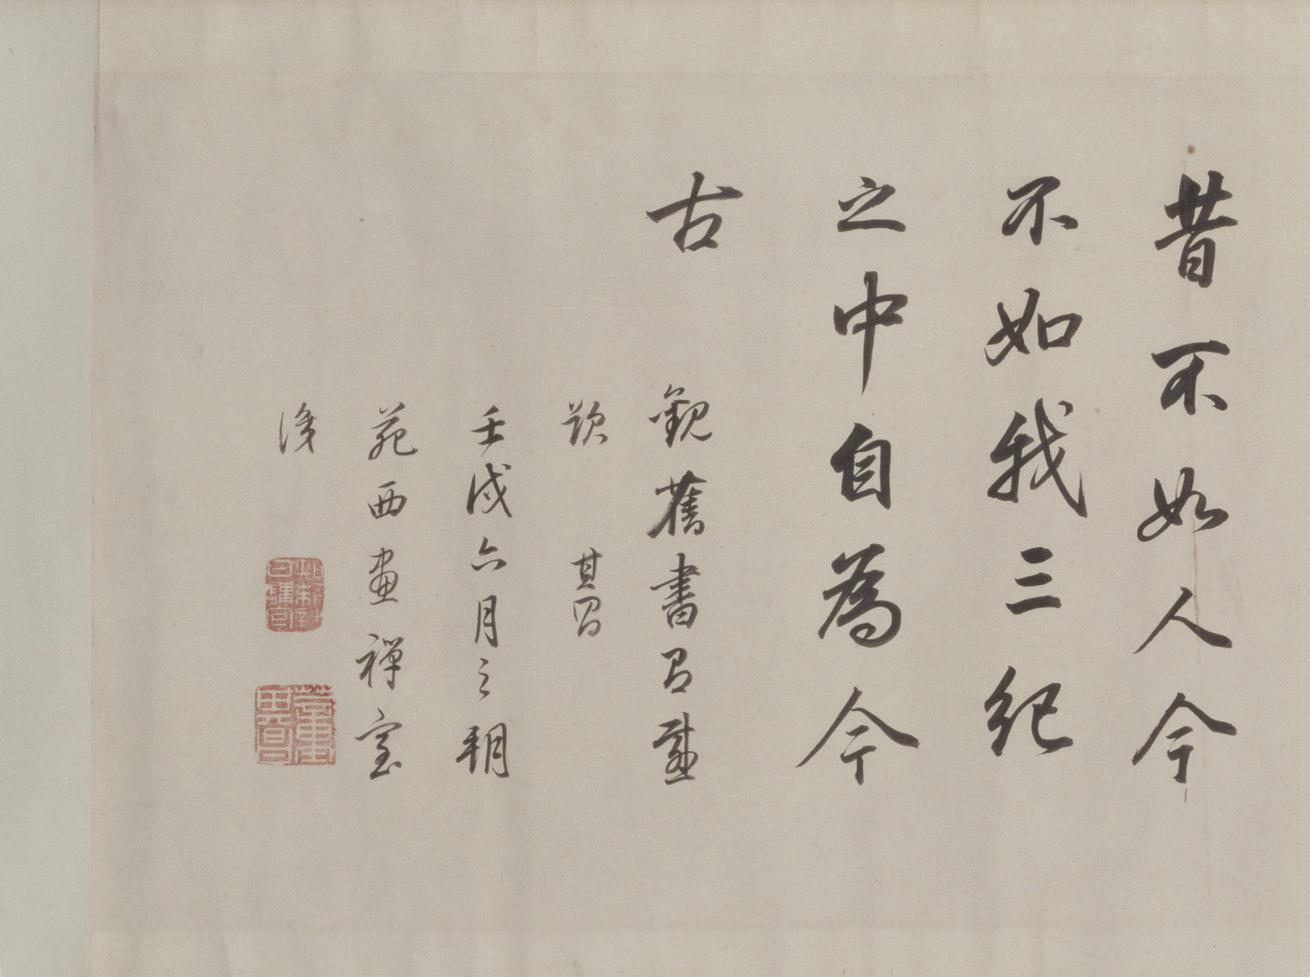 昔不如人今
不如我三紀
之中自為今
古
觀舊書因感
題 其昌
壬戌六月之朔
苑西畫禪室
識